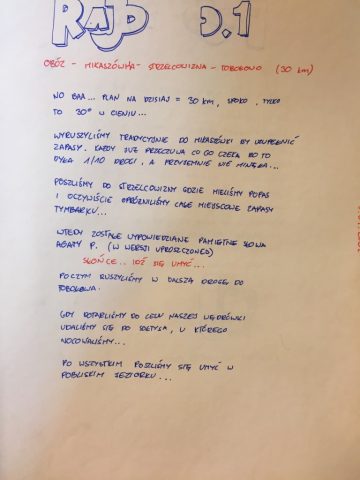 RAJD D.1
OBÓZ - MIKASZÓWKA - STRZELCOWIZNA - TOBOŁOWO (30 km)
NO BAA... PLAN NA DZISIAJ = 30 KM, SPOKO, TYLKO
TO 30° W CIENIU...
WYRUSZYLIŚMY TRADYCYJNIE DO MIKASZÓWKI BY UZUPEŁNIĆ
ZAPASY. KAŻDY JUŻ PRZECZUWA CO GO CZEKA BO TO
BYŁA 1/10 DROGI, A PRZYJEMNIE NIE MINĘŁA...
POSZLIŚMY DO STRZELCOWIZNY GDZIE MIELIŚMY POPAS
I OCZYWIŚCIE OPRÓŻNILIŚMY CAŁE MIEJSCOWE ZAPASY
TYMBARKU...
WTEDY ZOSTAŁY WYPOWIEDZIANE PAMIĘTNE SŁOWA
AGATY P. (W WERSJI UPROSZCZONEJ)
SŁOŃCE.. IDŹ SIĘ UMYĆ...
POCZYM RUSZYLIŚMY W DALSZĄ DROGĘ DO
TOBOŁOWA.
GDY DOTARLIŚMY DO CELU NASZEJ WĘDRÓWKI
UDALIŚMY SIĘ DO SOŁTYSA, U KTÓREGO
NOCOWALIŚMY...
PO WSZYSTKIM POSZLIŚMY SIĘ UMYĆ W
POBLISKIM JEZIORKU...